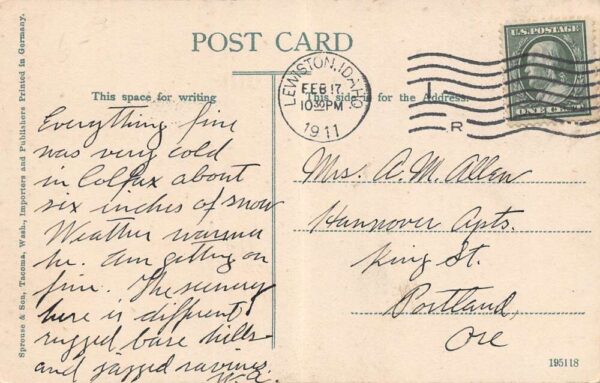 POST CARD
This space for writing
This side is for the Address.
LEWISTON, IDAHO.
FEB 17
10 30 PM
1911
1
R
U.S. POSTAGE
ONE CENT
Everything fine
was very cold
in Colfax about
six inches of snow
Weather warmer
he. Am getting on
fine. The scenery
here is different
rugged bare hills
and jagged ravines.
W.A.
Mrs. A. M. Allen
Hannover Apts.
King St.
Portland,
Ore
Sprouse & Son, Tacoma, Wash., Importers and Publishers Printed in Germany.
195118